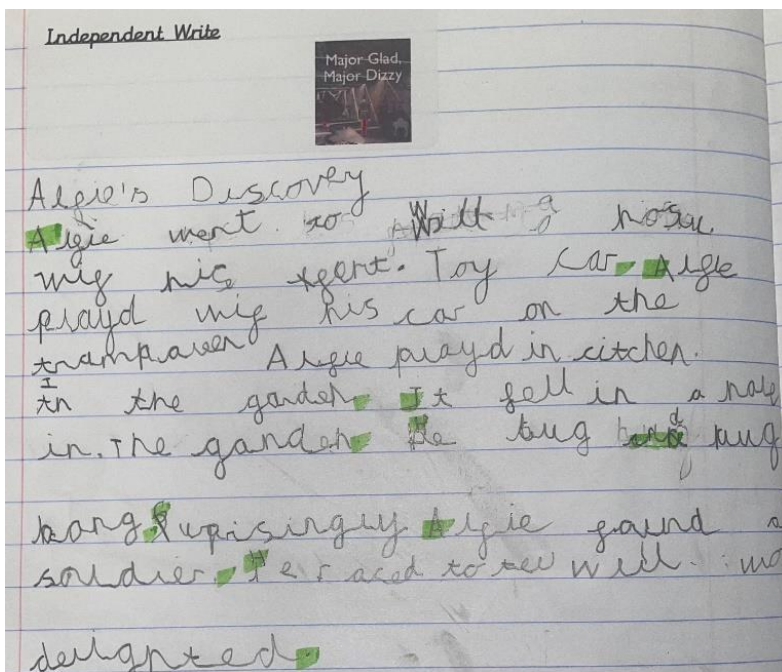 Independent Write
Major Glad,
Major Dizzy
Algie's Discovery
Algie went to Will
wig his Toy car. Algie
playd wig his car on the
Algie playd in citchen.
In the garden. It fell in a hole
in. The garden. He
Suprisingly Algie found a
soldier. He raced to Will.
delighted.